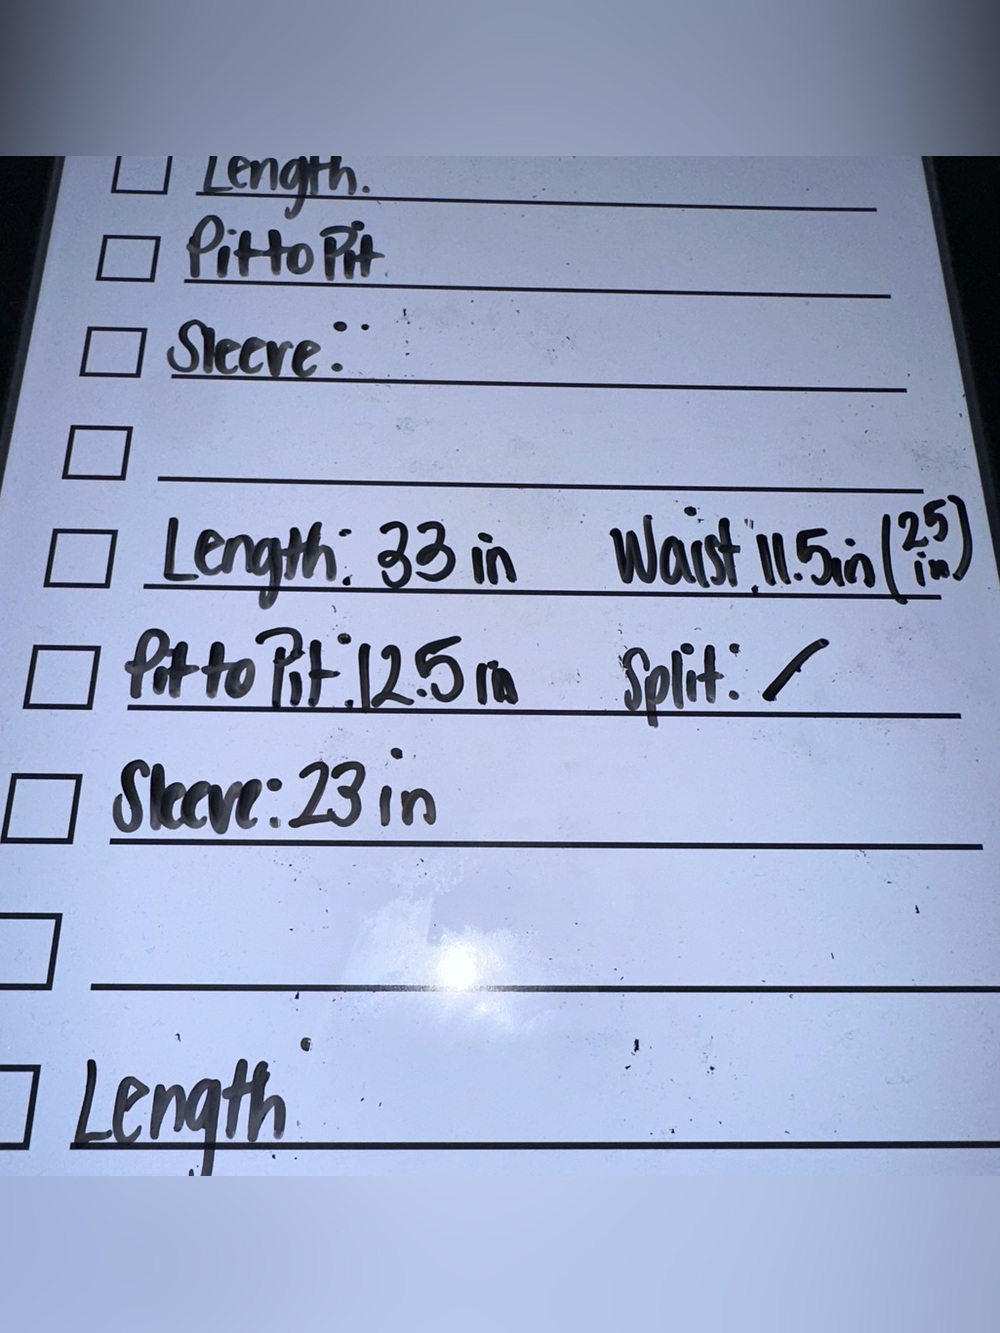 Length.
Pit to Pit
Sleeve:
Length: 33 in Waist: 11.5in (25 in)
Pit to Pit: 12.5 in Split: /
Sleeve: 23 in
Length